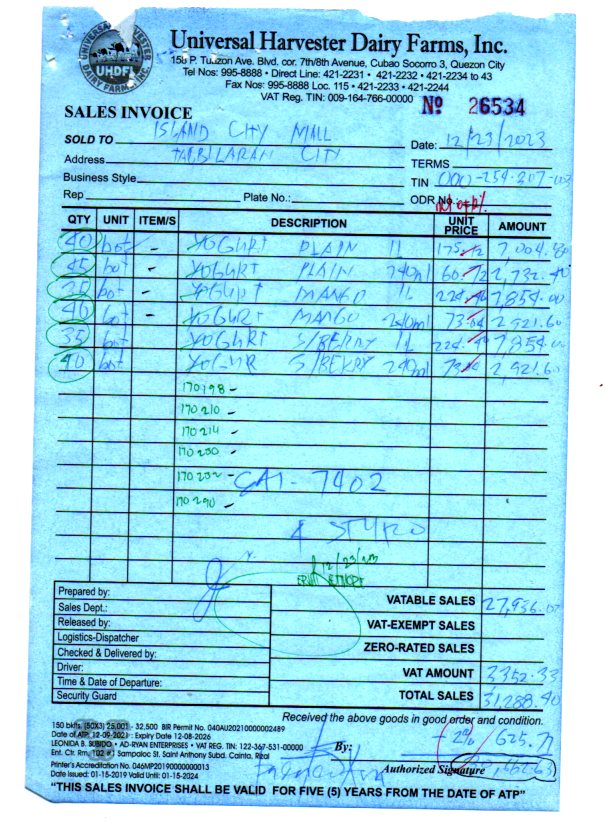 UNIVERSAL HARVESTER DAIRY FARMS, INC.
UHDFI
Universal Harvester Dairy Farms, Inc.
15b P. Tuazon Ave. Blvd. cor. 7th/8th Avenue, Cubao Socorro 3, Quezon City
Tel Nos: 995-8888 • Direct Line: 421-2231 • 421-2232 • 421-2234 to 43
Fax Nos: 995-8888 Loc. 115 • 421-2233 • 421-2244
VAT Reg. TIN: 009-164-766-00000 Nº 26534
SALES INVOICE
SOLD TO ISLAND CITY MALL Date: 12/23/2023
Address TAGBILARAN CITY TERMS
Business Style TIN 000-254-207-003
Rep Plate No.: ODR No.
QTY UNIT ITEM/S DESCRIPTION UNIT PRICE AMOUNT
40 bot - YOGURT PLAIN 1L 175.12 7,004.80
45 bot - YOGURT PLAIN 240ml 60.72 2,732.40
35 bot - YOGURT MANGO 1L 224.40 7,854.00
40 bot - YOGURT MANGO 240ml 73.04 2,921.60
35 bot YOGURT S/BERRY 1L 224.40 7,854.00
40 bot YOGURT S/BERRY 240ml 73.04 2,921.60
170198 -
170210 -
170214 -
170230 -
170232 - CAI - 7402
170290 -
4 STYRO
12/23/23
Prepared by:
Sales Dept.:
Released by:
Logistics-Dispatcher
Checked & Delivered by:
Driver:
Time & Date of Departure:
Security Guard
VATABLE SALES 27,936.07
VAT-EXEMPT SALES
ZERO-RATED SALES
VAT AMOUNT 3352.33
TOTAL SALES 31,288.40
Received the above goods in good order and condition.
- 2% 625.77
150 bkfts. (50X3) 25,001 - 32,500 BIR Permit No. 040AU20210000002489
Date of ATP: 12-09-2021 : Expiry Date 12-08-2026
LEONIDA B. SUBIDO • AD-RYAN ENTERPRISES • VAT REG. TIN: 122-367-531-00000
Ent. Ctr. Rm. 102 #7 Sampaloc St. Saint Anthony Subd. Cainta, Rizal
Printer's Accreditation No. 046MP20190000000013
Date Issued: 01-15-2019 Valid Until: 01-15-2024
By:
Authorized Signature
"THIS SALES INVOICE SHALL BE VALID FOR FIVE (5) YEARS FROM THE DATE OF ATP"